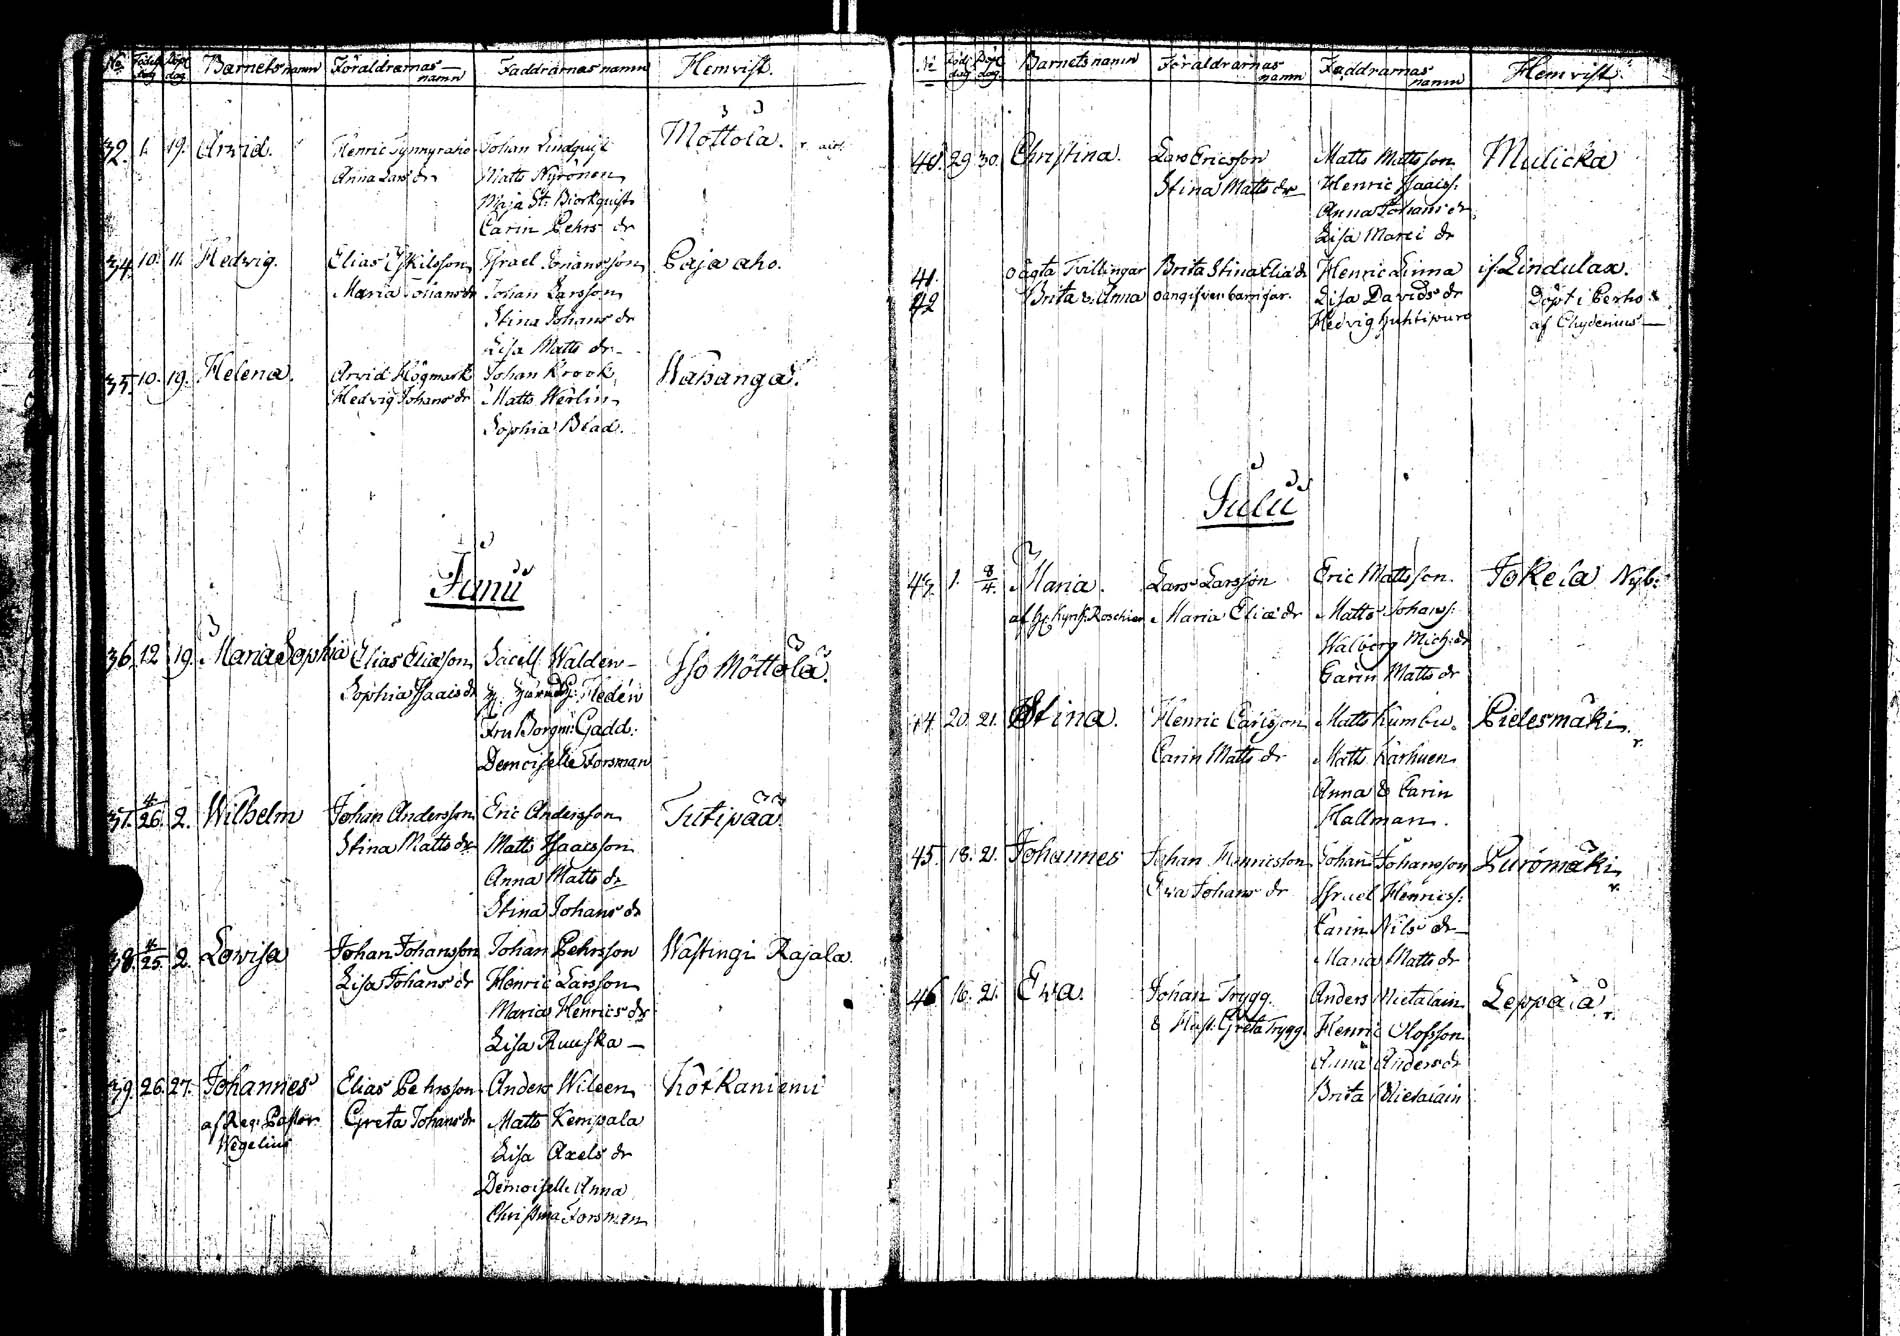 No Födelse dag Döpt dag Barnets namn Föräldrarnas namn Faddrarnas namn Hemvist.
32. 1. 19. Arvid. Henric Tynnyraho Johan Lindquist Möttölä.
Anna Lars dr Matts Nyrönen
Maja St: Biorkquist
Carin Pehrs dr
34. 10. 11. Hedvig. Elias Eskilsson Israel Jonansson Pajaaho.
Maria Johans dr Johan Larsson
Stina Johans dr
Lisa Matts dr
35. 10. 19. Helena. Arvid Högmark Johan Krook Wahanga.
Hedvig Johans dr Matts Werlin
Sophia Blad.
Junii
36. 12 19. Maria Sophia Elias Eliæson Sacell Walden Iso Möttölä.
Sophia Isaacs dr Heden
Fru Borgm: Gadd:
Demoiselle Forsman
37. 4/26. 2. Wilhelm Johan Andersson Eric Andersson Tutipää.
Stina Matts dr Matts Isaacsson
Anna Matts dr
Stina Johans dr
38. 4/25. 2. Lovisa Johan Johansson Johan Pehrsson Wastingi Rajala.
Lisa Johans dr Henric Larsson
Maria Henrics dr
Lisa Ruuska
39. 26. 27. Johannes Elias Pehrsson Anders Wileen Kötkaniemi
af Reg: Pastor Greta Johans dr Matts Kempala
Wegelius Lisa Axels dr
Demoiselle Anna
Christina Forsman
No Föd: dag Döpt dag. Barnets namn Föräldrarnas namn Faddrarnas namn Hemvist.
40. 29 30. Christina. Lars Ericsson Matts Mattsson Mulicka
Stina Matts dr Henric Isaacss:
Anna Johans dr
Lisa Marci dr
41. oägta Tvillingar Brita Stina Eliæ dr Henric Linna if. Lindulax.
42 Brita & Anna oangifven barnfar. Lisa Davids dr Döpt i Perho
Hedvig Huhtipuro af Chydenius
Julii
43. 1. 8/4. Maria. Lars Larsson Eric Mattsson. Jokela Nyb:
Roschier Maria Eliæ dr Matts Johanss:
Walborg Mich: dr
Carin Matts dr
44. 20. 21. Stina. Henric Carlsson Matts Kumbu. Pielesmäki.
Carin Matts dr Matts Karhuen
Anna & Carin
Hallman.
45. 18. 21. Johannes Johan Henricsson Johan Johansson Puromäki
Eva Johans dr Israel Henricss:
Carin Nils dr
Maria Matts dr
46 16. 21. Eva. Johan Trygg Anders Wietalain Leppälä
& Hust: Greta Trygg. Henric Olofsson
Anna Anders dr
Brita Wietalain